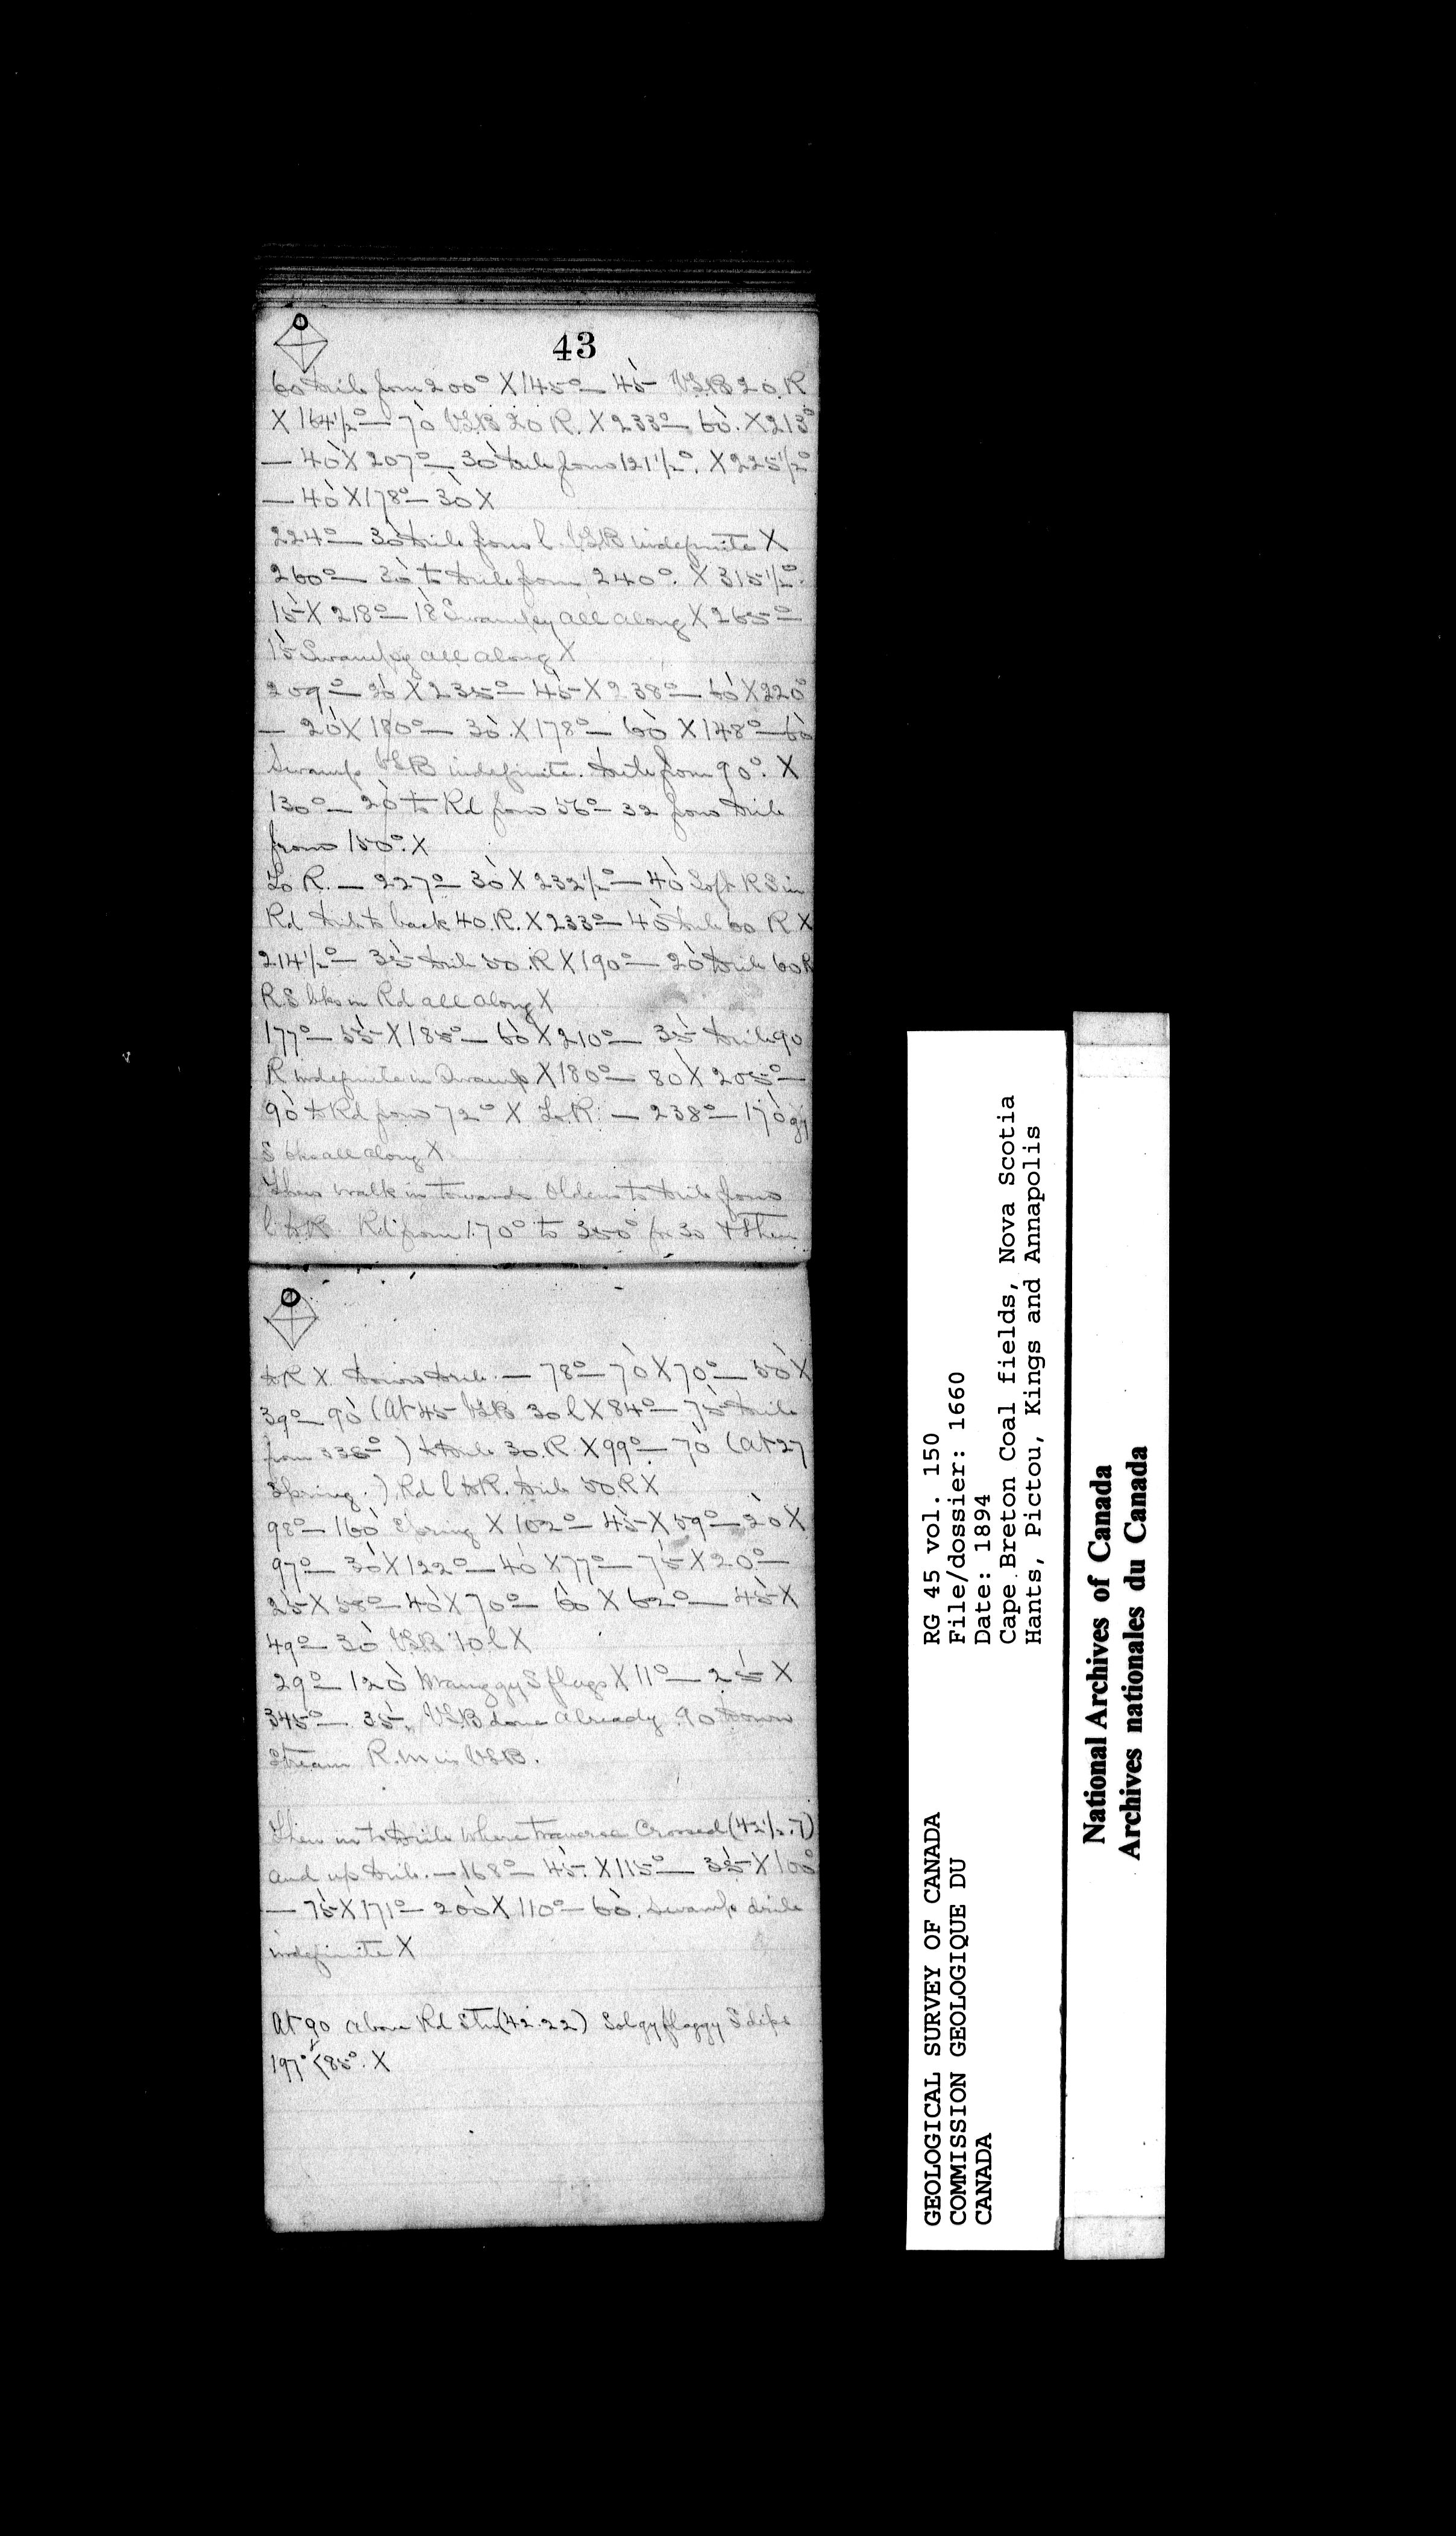 43
60 drib from 200° X 145° — 45 VSB 20 R
X 164½° — 70 VSB 20 R. X 233° — 60. X 213°
— 40 X 207° — 30 drib from 121½°. X 225½°
— 40 X 178° — 30 X
224° — 30 drib from l. VSB indefinite X
260° — 30 to drib from 240°. X 315½°.
15 X 218° — 18 Swampy all along X 265° —
15 Swampy all along X
209° — X 235° — 45 X 238° — 60 X 220°
— 20 X 190° — 30. X 178° — 60 X 148° — 60
Swamp VSB indefinite. drib from 90°. X
130° — 20 to Rd from 56° — 32 from drib
from 150°. X
To R. — 227° — 30 X 232½° — 40 Soft R S in
Rd drib to back 40. R. X 233° — 40 drib 60 R X
214½° — 35 drib 50. R X 190° — 20 drib 60 R
R S bks in Rd all along X
177° — 55 X 185° — 60 X 210° — 35 drib 90
R indefinite in Swamp X 180° — 80 X 205° —
90 to Rd from 72° X To R. — 238° — 170 gy
S bks all along X
Then walk in towards to drib from
l to R. Rd from 170° to 350° for 30 & then
to R X. down drib. — 78° — 70 X 70° — 50 X
39° — 90 (At 45 VSB 30 l X 84° — 75 drib
from ) to drib 30. R. X 99° — 70 (At 27
Spring.) Rd l to R. drib 50. R X
98° — 160 Spring X 102° — 45 X 59° — 20 X
97° — 30 X 122° — 40 X 77° — 75 X 20° —
25 X 58° — 40 X 70° — 60 X 62° — 45 X
49° — 30 VSB 10 l X
29° — 120 Many gy S flags X 11° — 25 X
345° — 35. VSB done already 90 down
Stream R. m in VSB.
Then in to drib where traverse Crossed (42½.7)
and up drib. — 168° — 45. X 115° — 35 X 100°
— 75 X 171° — 200 X 110° — 60. Swamp drib
indefinite X
At 90 above Rd Str (42.22) Sol gy flaggy S dips
197° < 85°. X
GEOLOGICAL SURVEY OF CANADA
COMMISSION GEOLOGIQUE DU
CANADA
RG 45 vol. 150
File/dossier: 1660
Date: 1894
Cape Breton Coal fields, Nova Scotia
Hants, Pictou, Kings and Annapolis
National Archives of Canada
Archives nationales du Canada